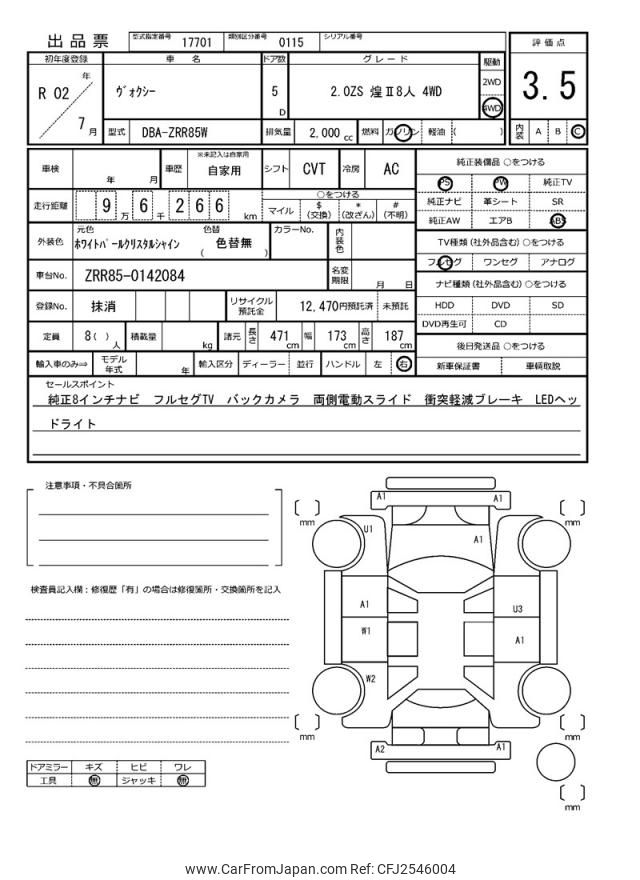 出品票 型式指定番号 17701 類別区分番号 0115 シリアル番号
評価点
3.5
初年度登録 車 名 ドア数 グレード 駆動
R 02 年 7 月
ヴォクシー 5 D 2.0ZS 煌Ⅱ8人 4WD 2WD 4WD
型式 DBA-ZRR85W 排気量 2,000 cc 燃料 ガソリン 軽油 ( )
内装 A B C
車検 年 月 車歴 ※未記入は自家用 自家用 シフト CVT 冷房 AC
走行距離 9 万 6 千 2 6 6 km
○をつける
マイル $ (交換) * (改ざん) # (不明)
外装色 元色 ホワイトパールクリスタルシャイン 色替 ( 色替無 ) カラーNo. 内装色
車台No. ZRR85-0142084 名変期限 月 日
登録No. 抹消 リサイクル預託金 12,470円預託済 未預託
定員 8( ) 人 積載量 kg 諸元 長さ 471 cm 幅 173 cm 高さ 187 cm
輸入車のみ⇒ モデル年式 年 輸入区分 ディーラー 並行 ハンドル 左 右
純正装備品 ○をつける
PS PW 純正TV
純正ナビ 革シート SR
純正AW エアB ABS
TV種類(社外品含む)○をつける
フルセグ ワンセグ アナログ
ナビ種類(社外品含む)○をつける
HDD DVD SD
DVD再生可 CD
後日発送品 ○をつける
新車保証書 車輌取説
セールスポイント
純正8インチナビ フルセグTV バックカメラ 両側電動スライド 衝突軽減ブレーキ LEDヘッ
ドライト
注意事項・不具合箇所
検査員記入欄：修復歴「有」の場合は修復箇所・交換箇所を記入
ドアミラー キズ ヒビ ワレ
工具 無 ジャッキ 無
A1 A1
[ ] mm [ ] mm
U1 A1
A1 U3
W1 A1
W2
[ ] mm [ ] mm
A2 A1
[ ] mm
www.CarFromJapan.com Ref: CFJ2546004